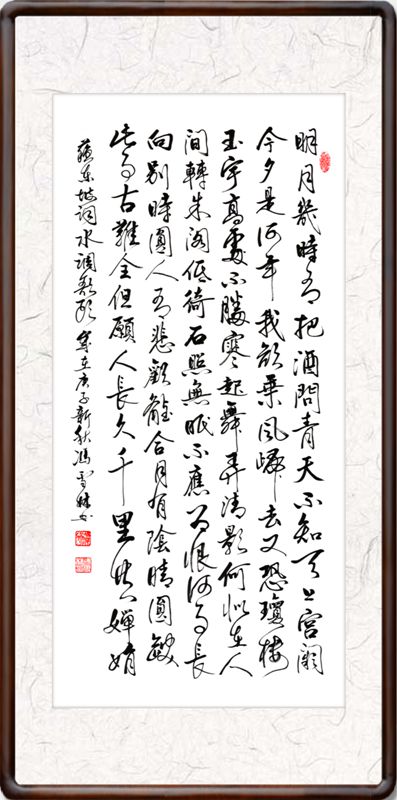 明月幾時有把酒問青天不知天上宮闕
今夕是何年我欲乘風歸去又恐瓊樓
玉宇高處不勝寒起舞弄清影何似在人
間轉朱閣低綺戶照無眠不應有恨何事長
向別時圓人有悲歡離合月有陰晴圓缺
此事古難全但願人長久千里共嬋娟
蘇東坡詞水調歌頭 歲在庚子新秋馮雪書